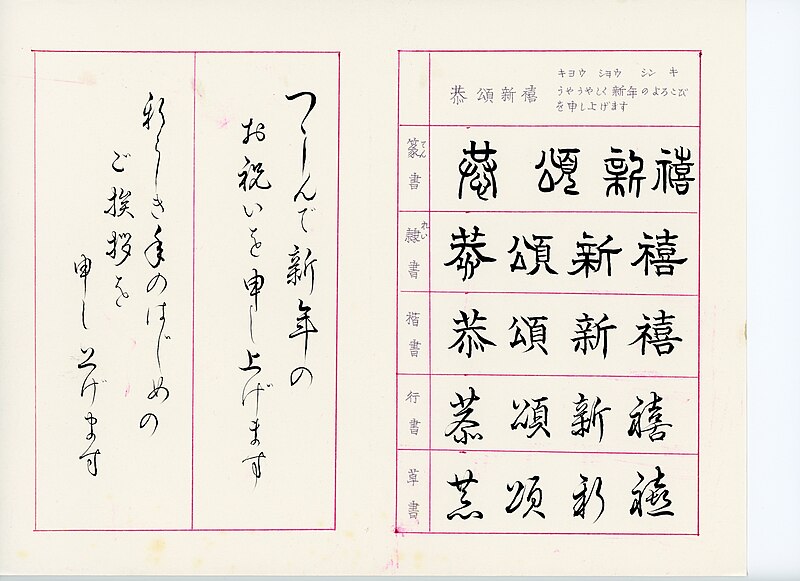 恭頌新禧
キヨウ シヨウ シン キ
うやうやしく新年のよろこび
を申し上げます
篆書 てん
恭頌新禧
隷書 れい
恭頌新禧
楷書
恭頌新禧
行書
恭頌新禧
草書
恭頌新禧
つゝしんで新年の
お祝いを申し上げます
新らしき年のはじめの
ご挨拶を
申し上げます